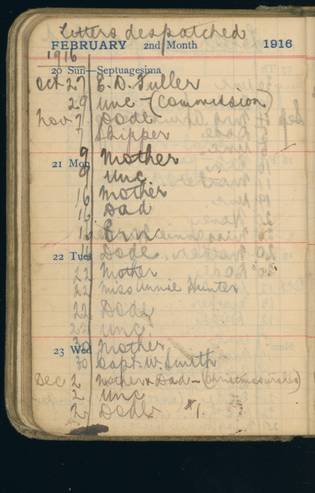 Letters despatched
FEBRUARY 2nd Month 1916
1916
20 Sun—Septuagesima
Oct 27 E. D. Fuller
29 Unc - (Commission)
Nov 7 Dode
7 Skipper
9 Mother
21 Mon
9 Unc
16 Mother
16 Dad
16 Ern
16 Dode
22 Tues
22 Mother
22 Miss Annie Hunter
22 Dode
22 Unc.
30 Mother
23 Wed
30 Capt. W. Smith
Dec 2 Mother & Dad - (Christmas)
2 Unc
2 Dode